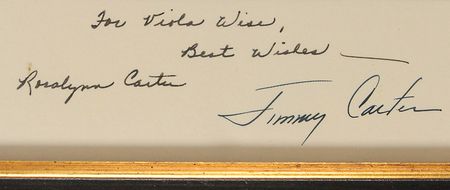 For Viola Wise,
Best Wishes —
Rosalynn Carter
Jimmy Carter